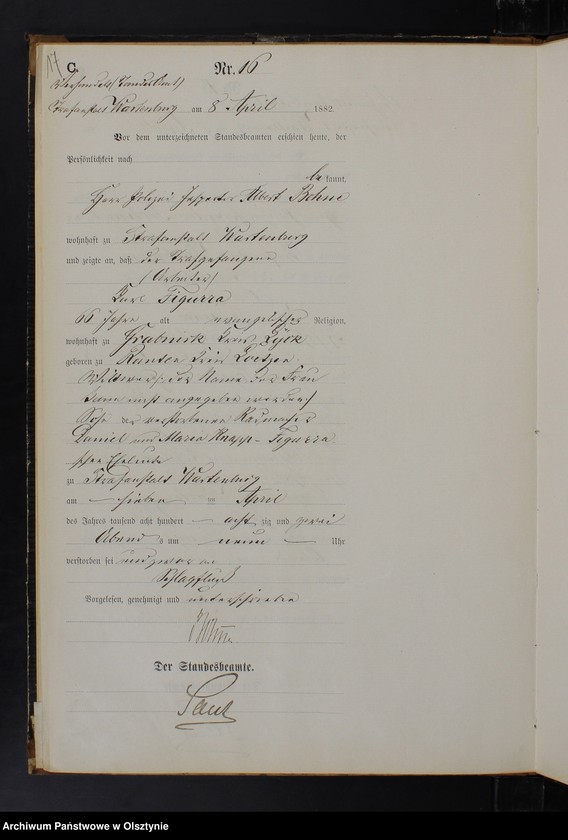 17
C.
Nr. 16
Strafanstalt Wartenburg am 8 April 1882.
Vor dem unterzeichneten Standesbeamten erschien heute, der
Persönlichkeit nach
bekannt,
Herr Polizei Inspector Albert Bohne
wohnhaft zu Strafanstalt Wartenburg
und zeigte an, daß der Strafgefangene
(Arbeiter)
Karl Figurra
66 Jahre alt evangelischer Religion,
wohnhaft zu Grabnick Kreis Lyck
geboren zu Kreis Loetzen
Wittwer, der Name der Frau
kann nicht angegeben werden
Sohn der verstorbenen
Daniel und Maria Knapp-Figurra
schen Eheleute
zu Strafanstalt Wartenburg
am sieben ten April
des Jahrs tausend acht hundert acht zig und zwei
Abends um neun Uhr
verstorben sei und zwar am
Schlagfluß
Vorgelesen, genehmigt und unterschrieben
Bohne
Der Standesbeamte.
Archiwum Państwowe w Olsztynie